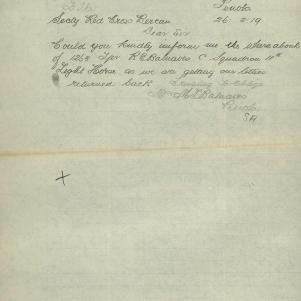 Penola
Secty Red Cross Kercan 26.2.19
Dear Sir
Could you kindly inform me the whereabouts
of 1268 Tpr R E Balnaves C Squadron 11th
Light Horse as we are getting our letters
returned back
Balnaves
Penola
SA
X